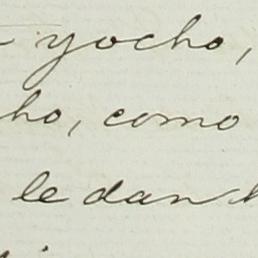 yocho,
ho, como
le dan